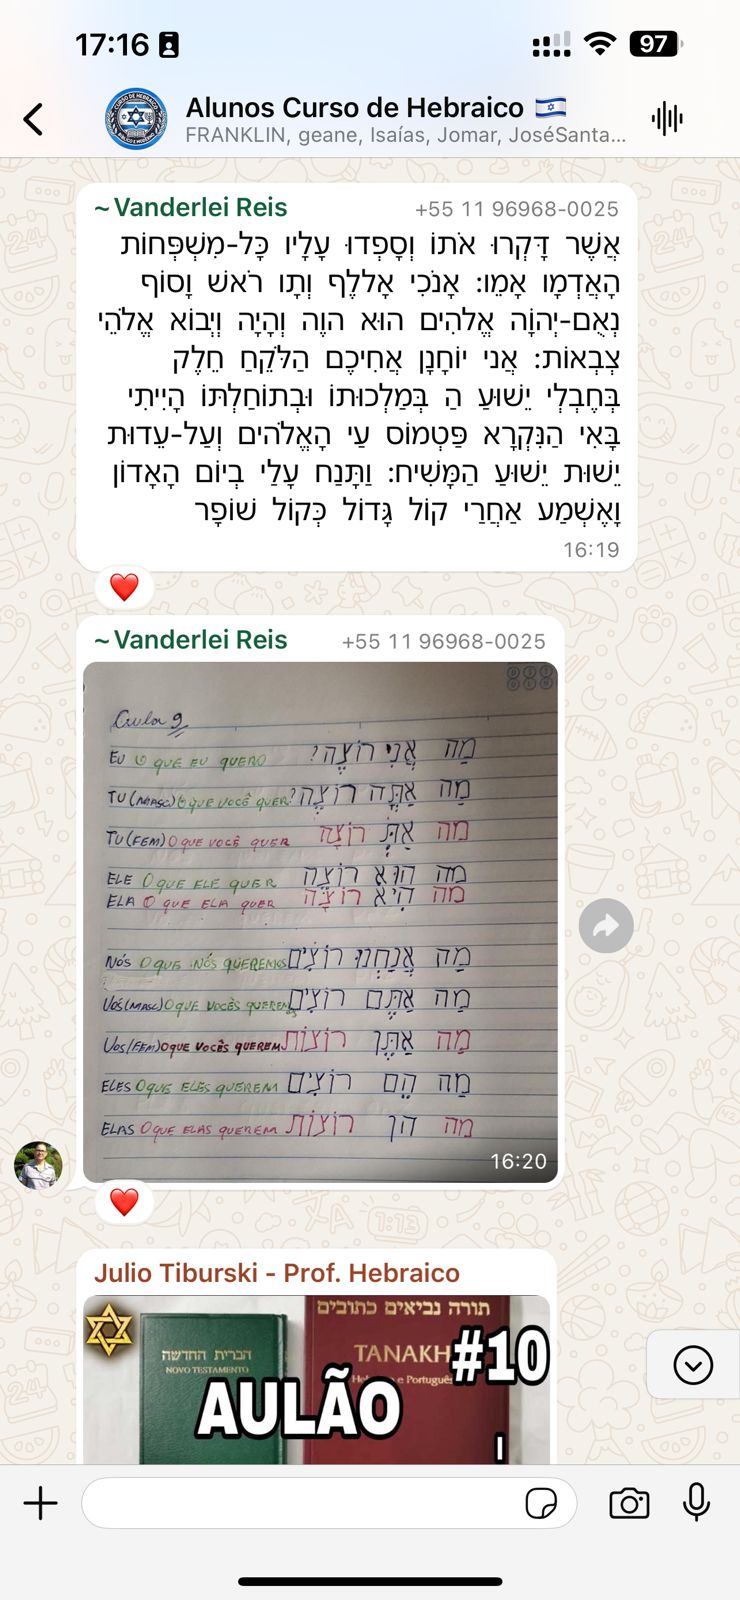 17:16
97
Alunos Curso de Hebraico 🇮🇱
FRANKLIN, geane, Isaías, Jomar, JoséSanta...
~Vanderlei Reis +55 11 96968-0025
אֲשֶׁר דָּקְרוּ אֹתוֹ וְסָפְדוּ עָלָיו כָּל-מִשְׁפְּחוֹת
הָאֲדְמָו אָמֵו: אָנֹכִי אָללֶף וְתָו רֹאשׁ וָסוֹף
נְאֻם-יְהוָֹה אֱלֹהִים הוּא הוֶה וְהָיָה וְיָבוֹא אֱלֹהֵי
צְבָאוֹת: אֲני יוֹחָנָן אֲחִיכֶם הַלֹּקֵחַ חֵלֶק
בְּחֶבְלֵי יֵשׁוּעַ הַ בְּמַלְכוּתוֹ וּבְתוֹחַלְתּוֹ הָיִיתִי
בָּאִי הַנִּקְרָא פַּטְמוֹס עַי הָאֱלֹהִים וְעַל-עֵדוּת
יֵשׁוּת יֵשׁוּעַ הַמָּשִׁיחַ: וַתָּנַח עָלַי בְיוֹם הָאָדוֹן
וָאֶשְׁמַע אַחֲרַי קוֹל גָּדוֹל כְּקוֹל שׁוֹפָר
16:19
~Vanderlei Reis +55 11 96968-0025
Aula 9
EU O QUE EU QUERO מַה אֲנִי רוֹצֶה?
TU (MASC) O QUE VOCÊ QUER מַה אַתָּה רוֹצֶה?
TU (FEM) O QUE VOCÊ QUER מה אַתְּ רוֹצָה
ELE O QUE ELE QUER מַה הוּא רוֹצֶה
ELA O QUE ELA QUER מַה הִיא רוֹצָה
NÓS O QUE NÓS QUEREMOS מַה אֲנַחְנוּ רוֹצִים
VÓS (MASC) O QUE VOCÊS QUEREM מַה אַתֶּם רוֹצִים
VOS (FEM) O QUE VOCÊS QUEREM מַה אַתֶּן רוֹצוֹת
ELES O QUE ELES QUEREM מַה הֵם רוֹצִים
ELAS O QUE ELAS QUEREM מַה הן רוֹצוֹת
16:20
Julio Tiburski - Prof. Hebraico
תורה נביאים כתובים
הברית החדשה
NOVO TESTAMENTO
TANAKH
#10
AULÃO